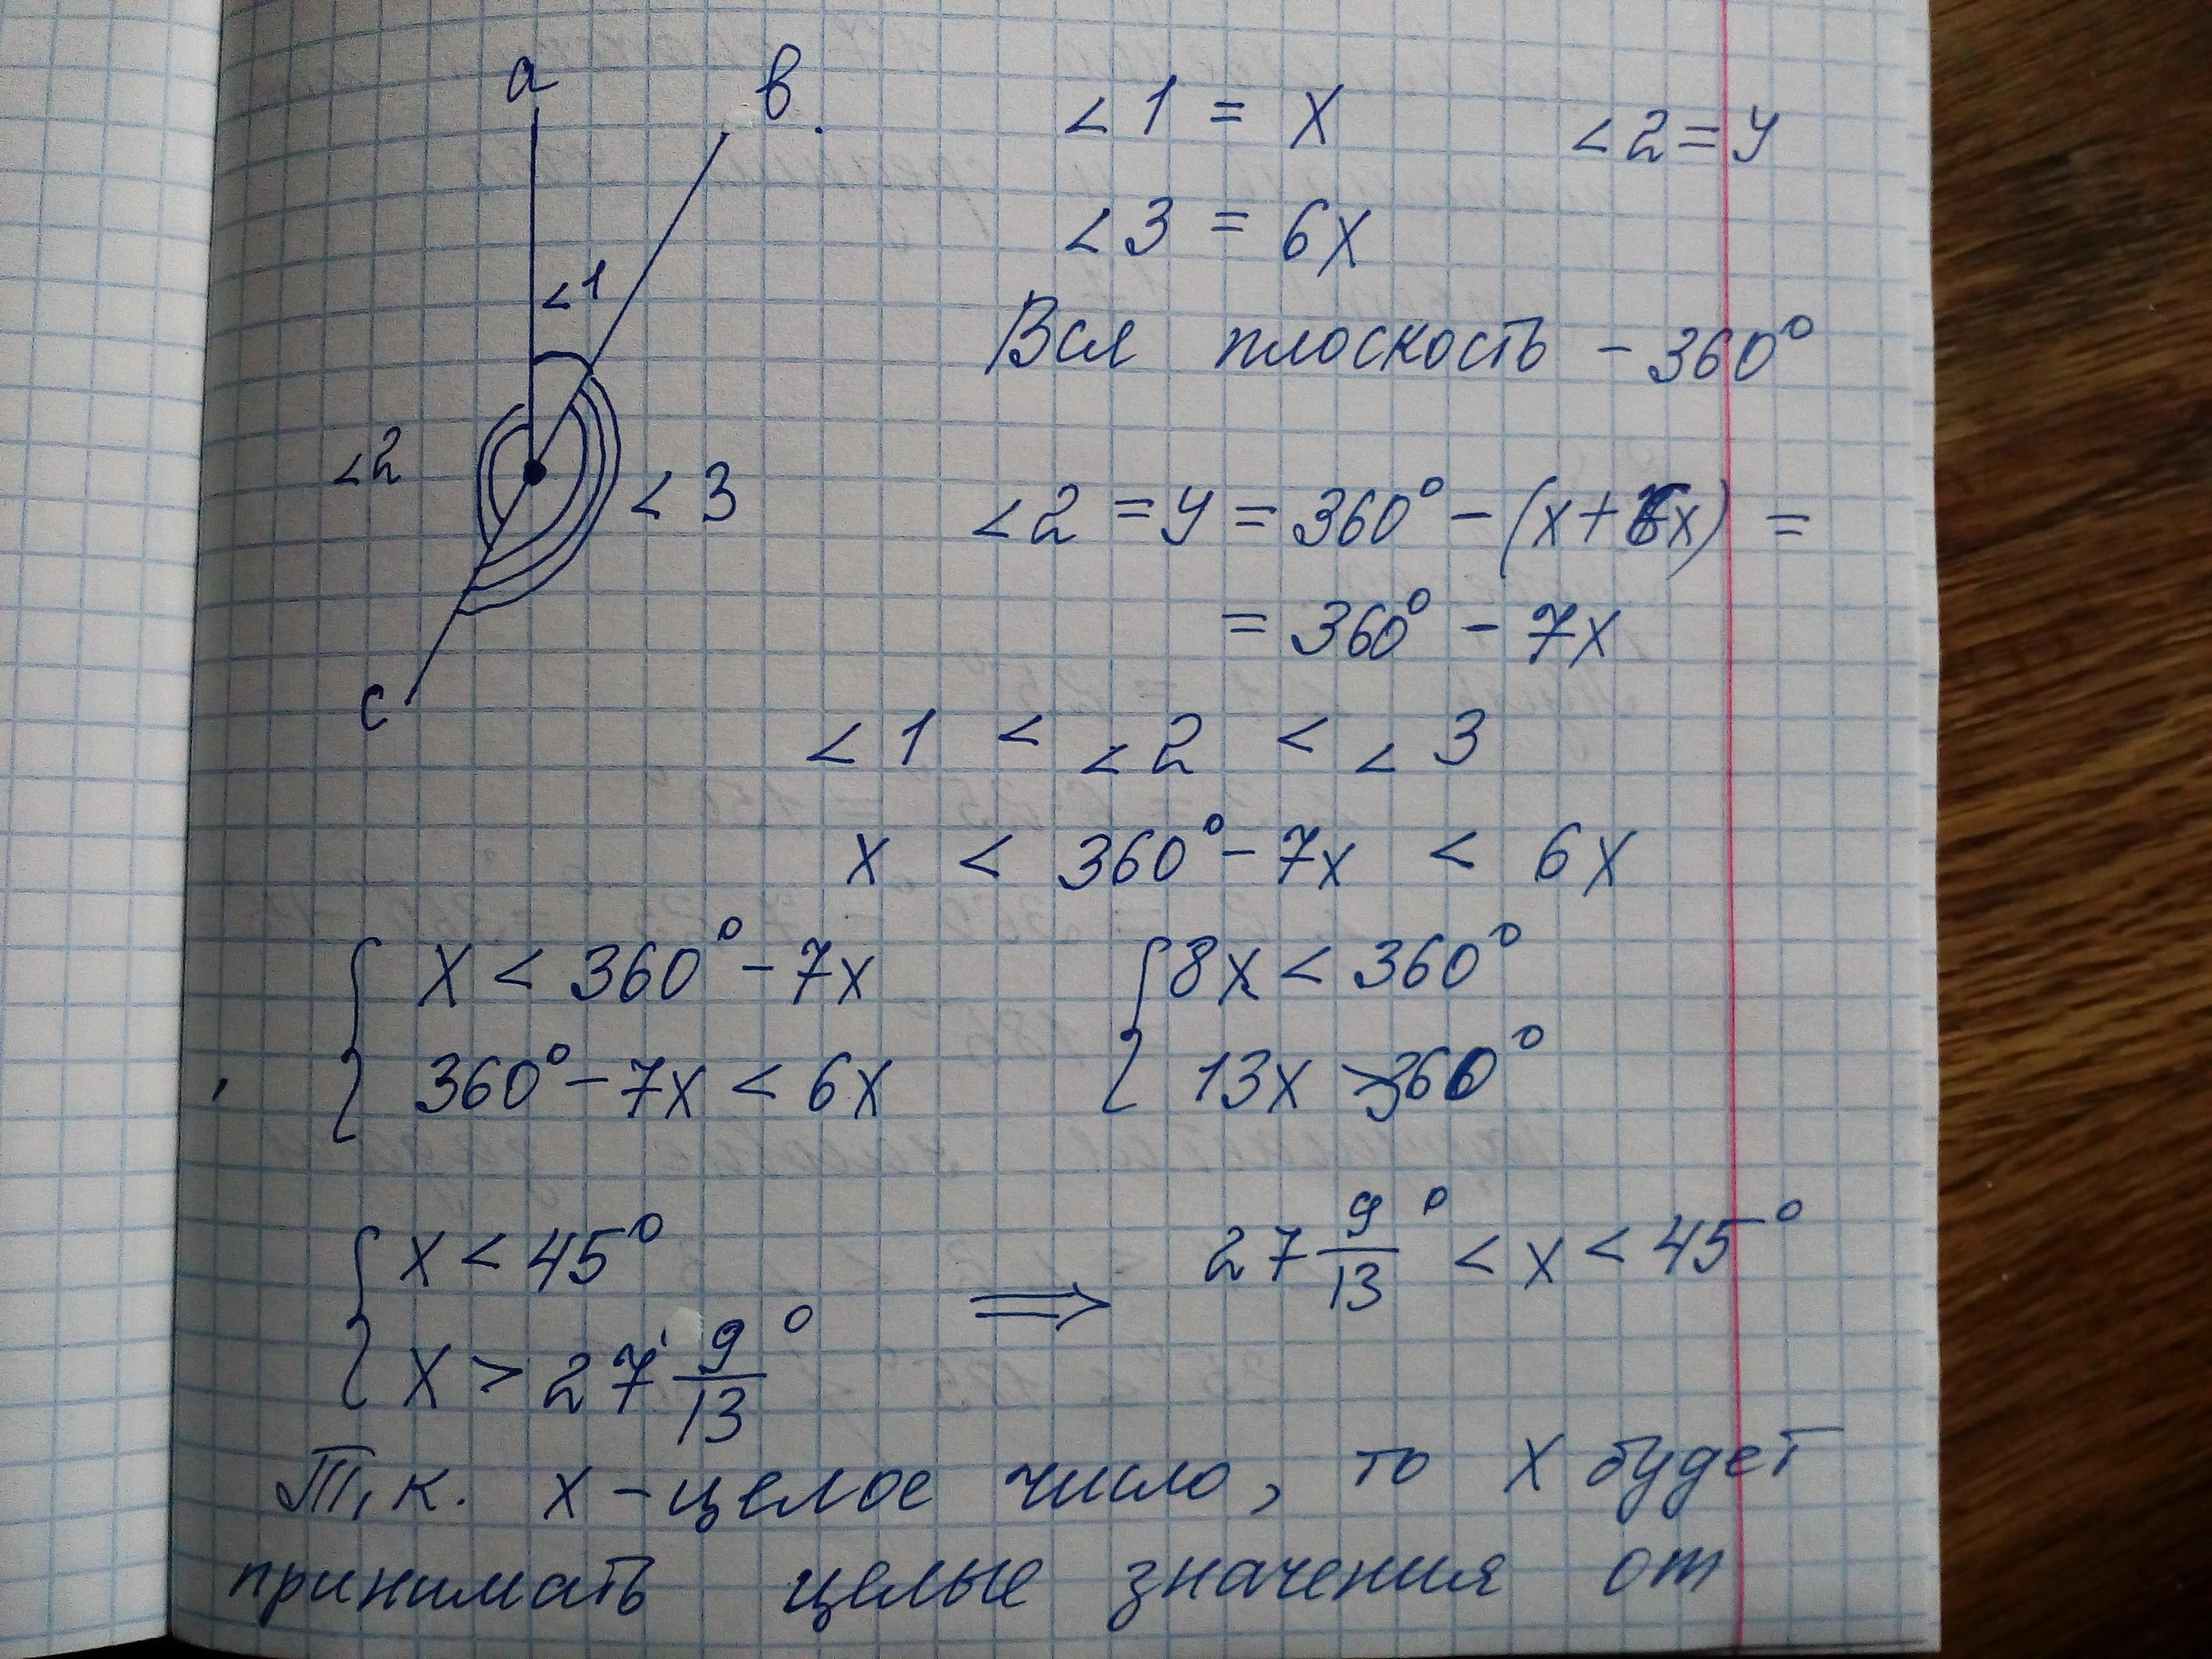 a
в.
∠1 = x
∠2 = y
∠3 = 6x
∠1
Вся плоскость - 360°
∠2
∠3
∠2 = y = 360° - (x + 6x) =
= 360° - 7x
c
∠1 < ∠2 < ∠3
x < 360° - 7x < 6x
{ x < 360° - 7x
360° - 7x < 6x
{ 8x < 360°
13x > 360°
{ x < 45°
x > 27 9/13°
⟹ 27 9/13° < x < 45°
Т.к. x - целое число, то x будет
принимать целые значения от